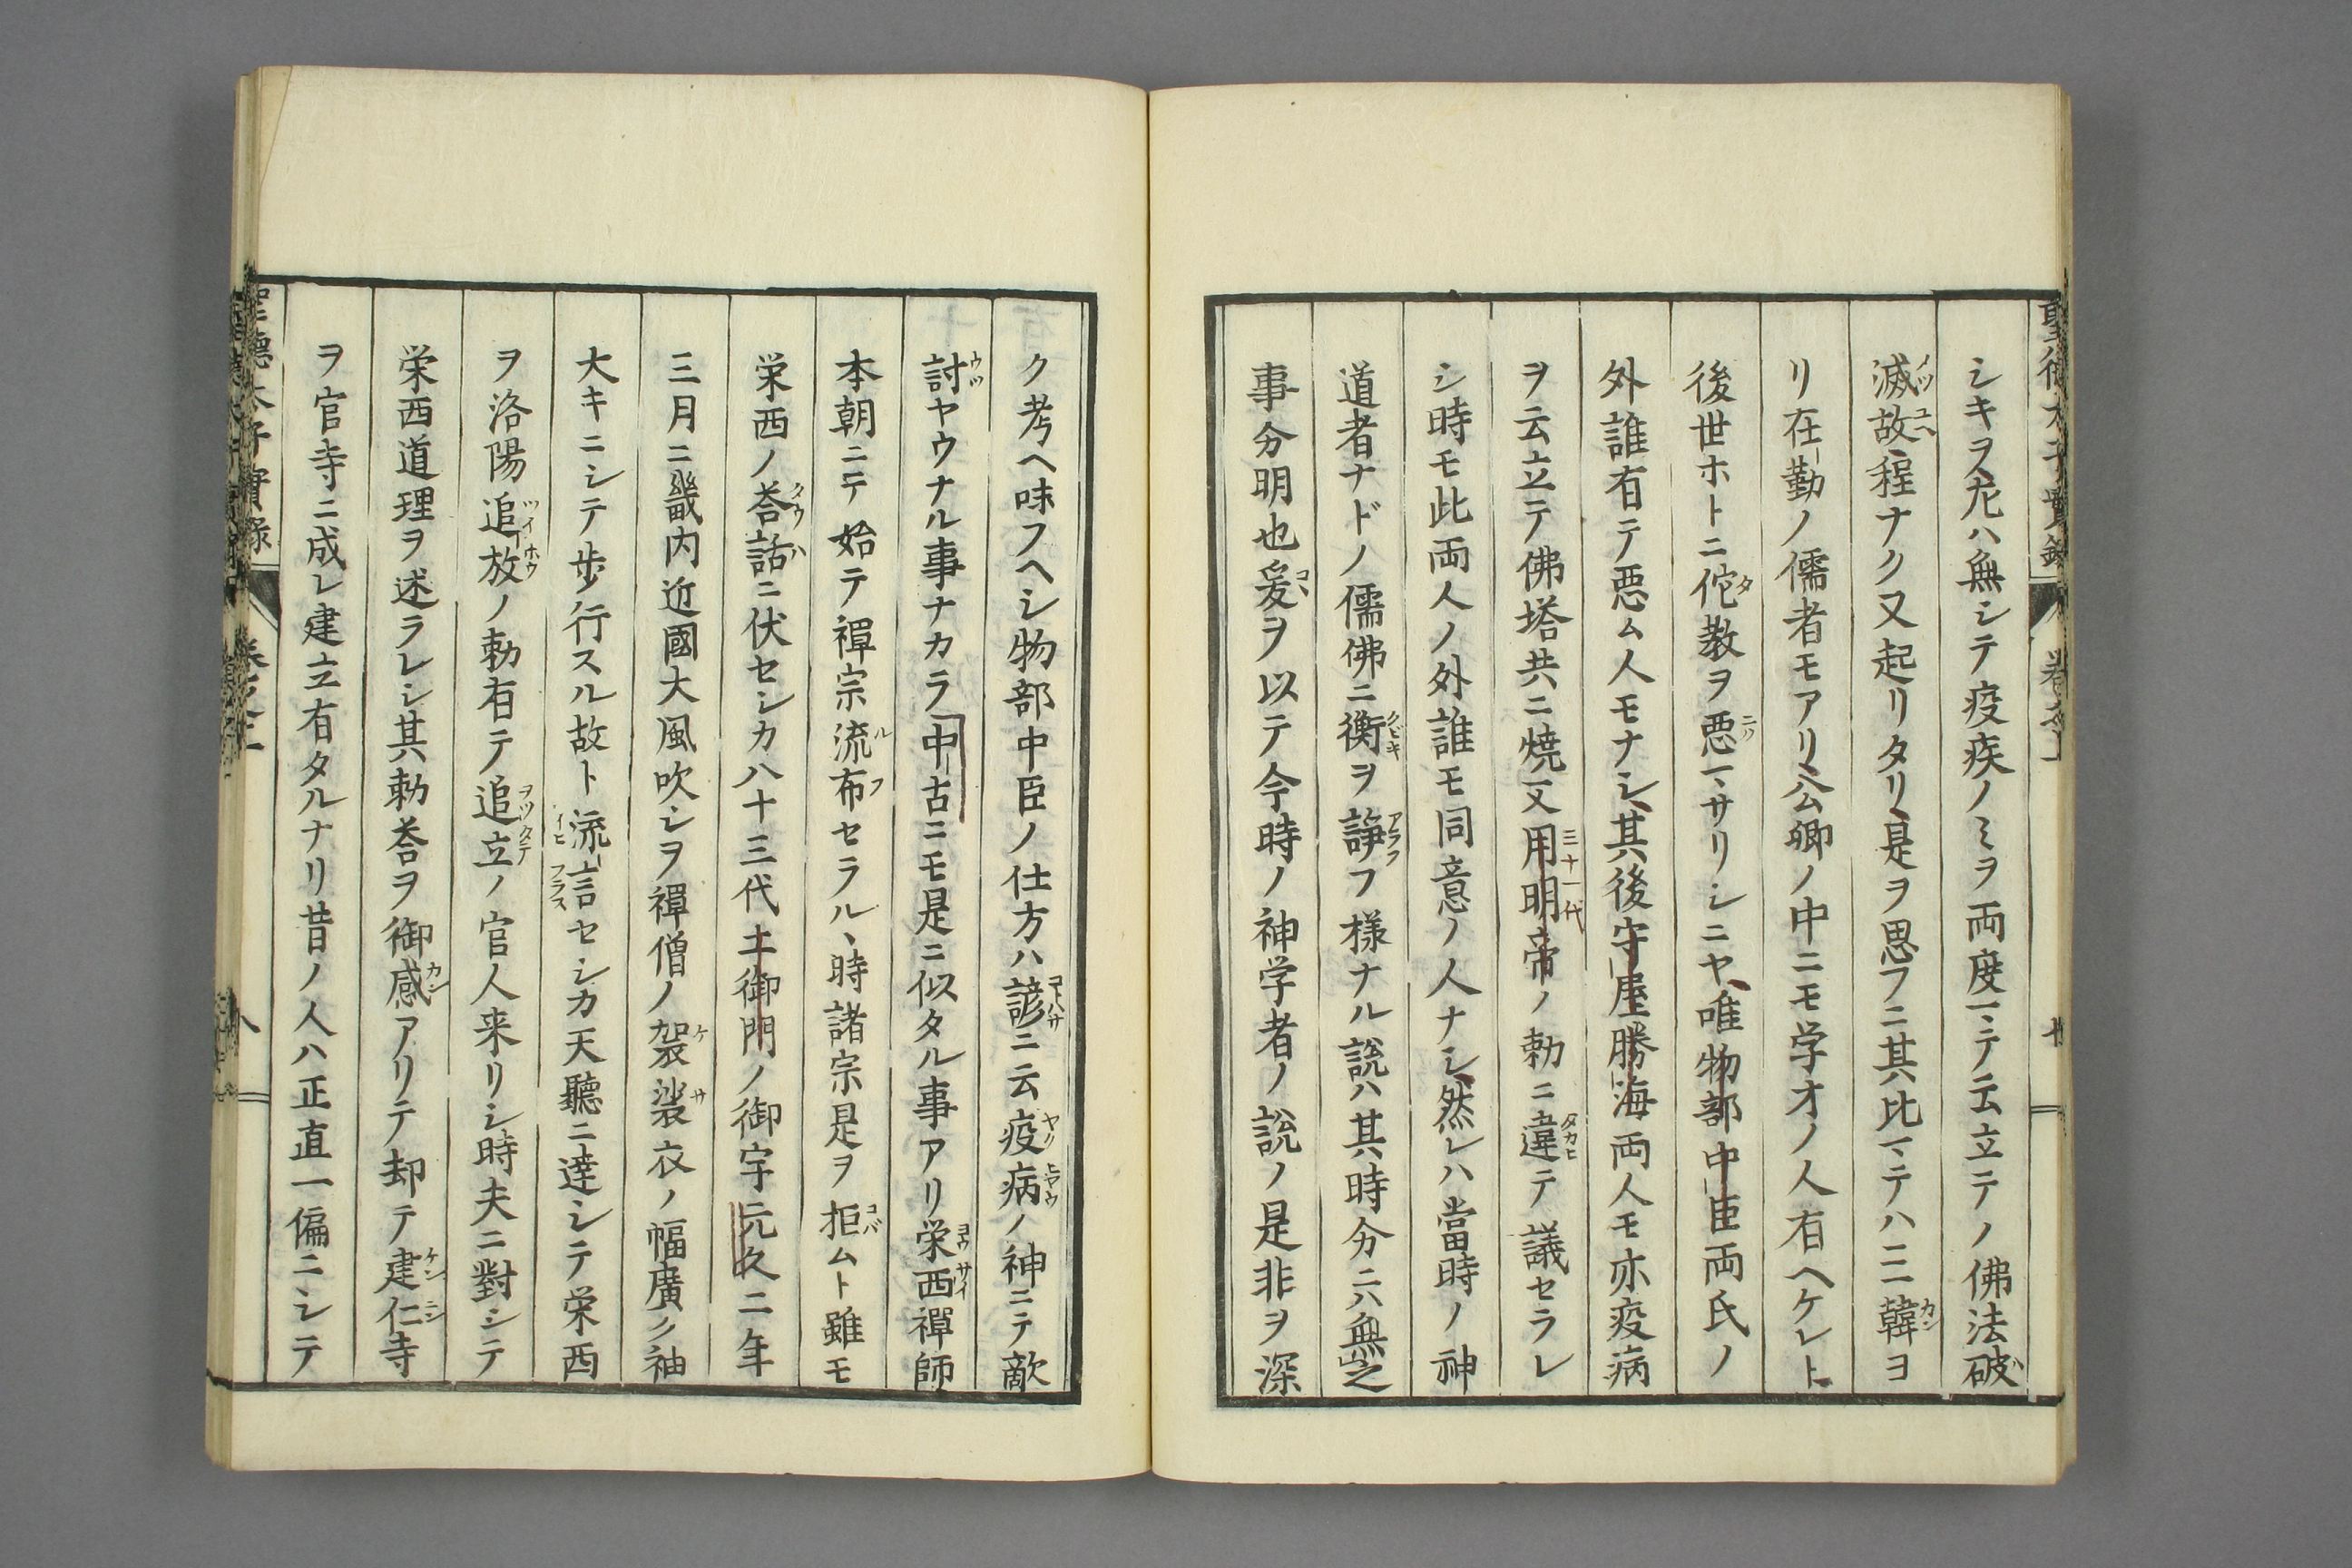 シキヲ尤ハ無シテ疫疾ノミヲ両度マテ云立テノ佛法破
滅故、程ナク又起リタリ、是ヲ思フニ其比マテハ三韓ヨ
リ在勤ノ儒者モアリ、公卿ノ中ニモ学オノ人有ヘケレト
後世ホトニ佗教ヲ悪マサリシニヤ、唯物部中臣両氏ノ
外誰有テ悪ム人モナシ、其後守屋勝海両人モ亦疫病
ヲ云立テ佛塔共ニ焼又用明帝ノ勅ニ違テ議セラレ
シ時モ此両人ノ外誰モ同意ノ人ナシ、然レハ當時ノ神
道者ナドノ儒佛ニ衡ヲ諍フ様ナル説ハ其時分ニハ無之
事分明也爰ヲ以テ今時ノ神学者ノ説ノ是非ヲ深
ク考ヘ味フヘシ物部中臣ノ仕方ハ諺ニ云疫病ノ神ニテ敵
討ヤウナル事ナカラ中古ニモ是ニ似タル事アリ栄西禪師
本朝ニテ始テ禪宗流布セラル、時諸宗是ヲ拒ムト雖モ
栄西ノ荅話ニ伏セシカ八十三代土御門ノ御宇元久二年
三月ニ畿内近國大風吹シヲ禪僧ノ袈裟衣ノ幅廣ク袖
大キニシテ歩行スル故ト流言セシカ天聽ニ達シテ栄西
ヲ洛陽追放ノ勅有テ追立ノ官人来リシ時夫ニ對シテ
栄西道理ヲ述ラレシ其勅荅ヲ御感アリテ却テ建仁寺
ヲ官寺ニ成レ建立有タルナリ昔ノ人ハ正直一偏ニシテ